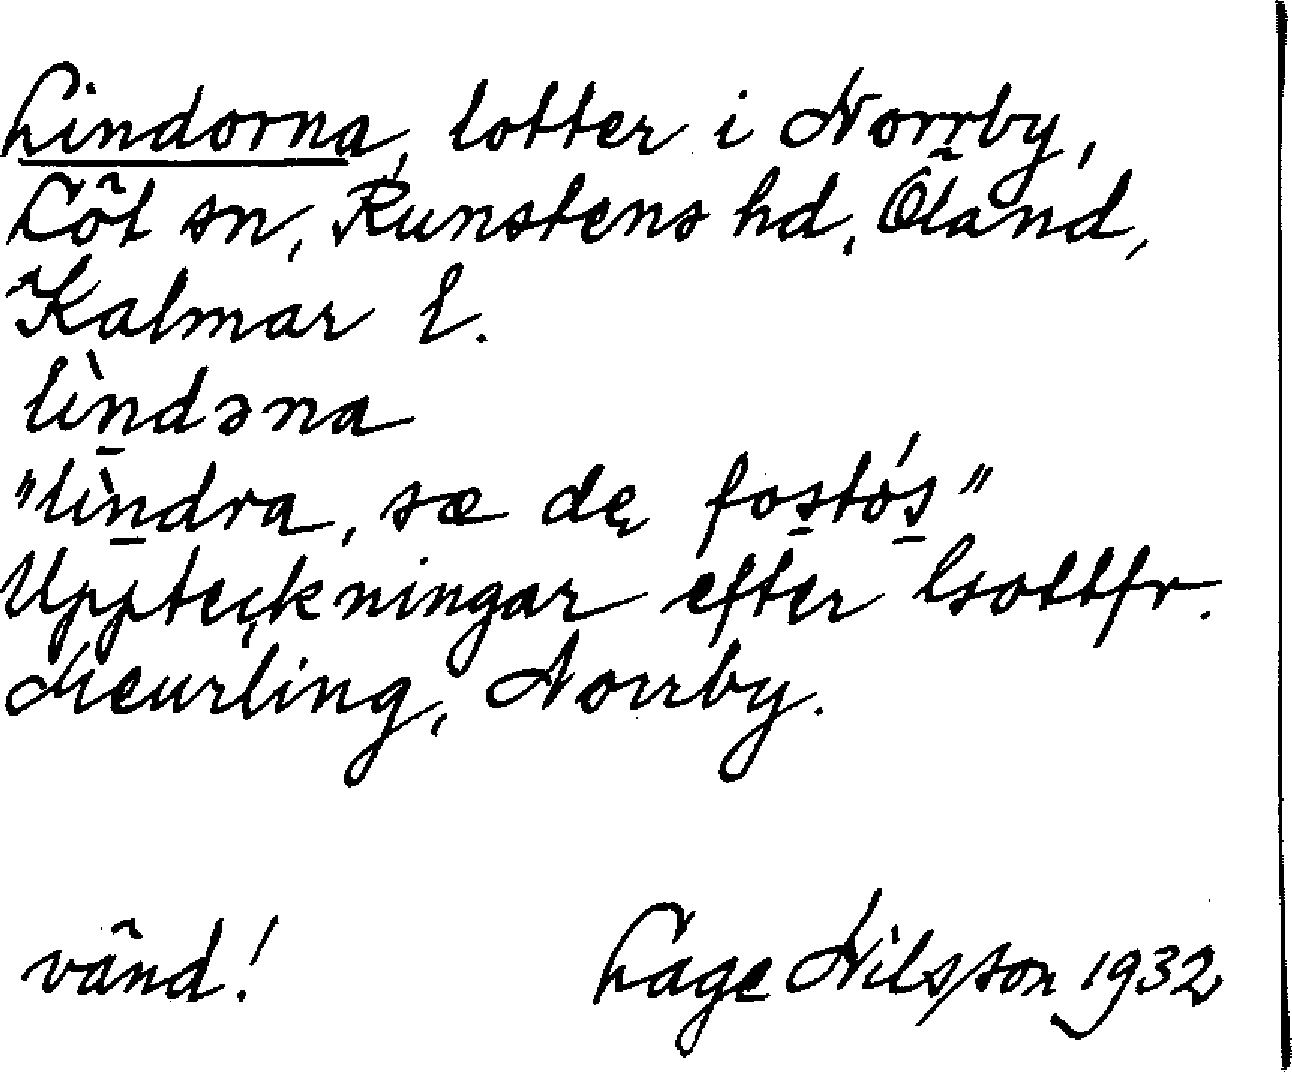 Lindorna, lotter i Norrby,
Löt sn, Runstens hd, Öland,
Kalmar l.
lìndəna
"lìndra, sæ dę fostós"
Uppteckningar efter Gottfr.
Meurling, Norrby.
vänd! Lage Nilsson 1932